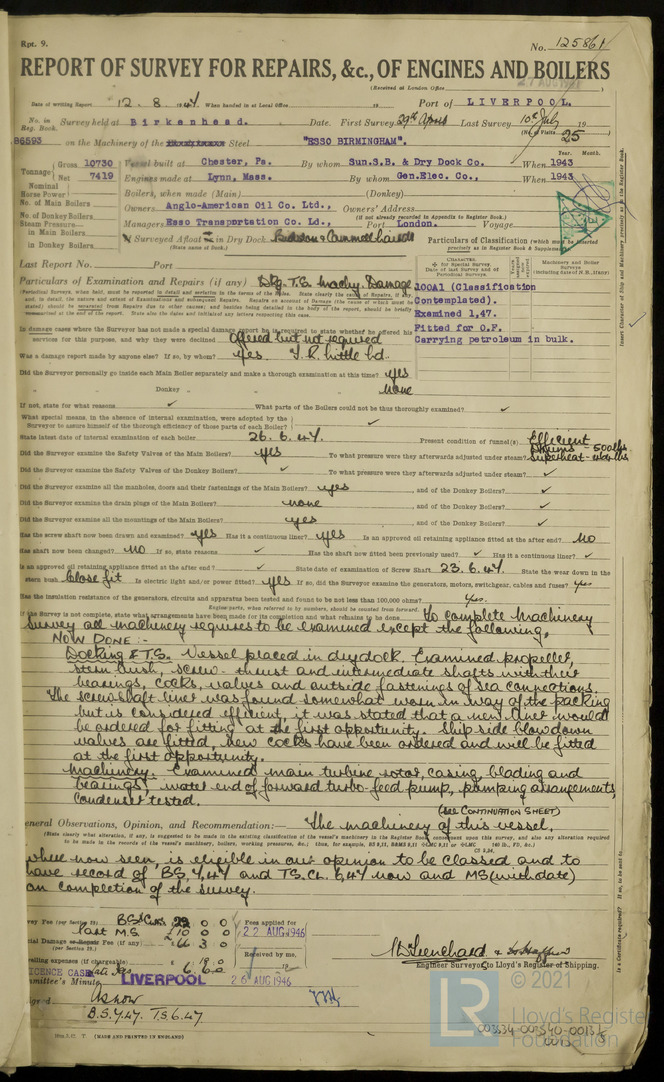 Rpt. 9.
No. 125861
REPORT OF SURVEY FOR REPAIRS, &c., OF ENGINES AND BOILERS
(Received at London Office
Date of writing Report 12. 8. 1947 When handed in at Local Office 19 Port of LIVERPOOL.
No. in Reg. Book. Survey held at Birkenhead. Date. First Survey 29th April Last Survey 10th July 19
(No. of Visits 25
86593 on the Machinery of the Steel "ESSO BIRMINGHAM".
Year. Month.
Tonnage Gross 10730 Vessel built at Chester, Pa. By whom Sun.S.B. & Dry Dock Co. When 1943
Net 7419 Engines made at Lynn, Mass. By whom Gen.Elec. Co., When 1943
Nominal Horse Power
Boilers, when made (Main) (Donkey)
No. of Main Boilers Owners Anglo-American Oil Co. Ltd., Owners' Address
(if not already recorded in Appendix to Register Book.)
No. of Donkey Boilers Managers Esso Transportation Co. Ld., Port London. Voyage
Steam Pressure in Main Boilers
in Donkey Boilers
Surveyed Afloat in Dry Dock
(State name of Dock.)
Particulars of Classification (which must be inserted
precisely as in Register Book & Supplement)
Last Report No. Port
Particulars of Examination and Repairs (if any) Dkg. T.S. Machy. Damage
100A1 (Classification
Contemplated).
Examined 1,47.
Fitted for O.F.
Carrying petroleum in bulk.
In damage cases where the Surveyor has not made a special damage report he is required to state whether he offered his
services for this purpose, and why they were declined offered but not required
Was a damage report made by anyone else? If so, by whom? yes.
Did the Surveyor personally go inside each Main Boiler separately and make a thorough examination at this time? yes
" " Donkey " " " none
If not, state for what reasons ✓ What parts of the Boilers could not be thus thoroughly examined? ✓
What special means, in the absence of internal examination, were adopted by the
Surveyor to assure himself of the thorough efficiency of those parts of each Boiler? ✓
State latest date of internal examination of each boiler 26. 6. 47. Present condition of funnel(s) Efficient
Did the Surveyor examine the Safety Valves of the Main Boilers? yes To what pressure were they afterwards adjusted under steam? Drums - 500 lbs
Superheat -
Did the Surveyor examine the Safety Valves of the Donkey Boilers? ✓ To what pressure were they afterwards adjusted under steam? ✓
Did the Surveyor examine all the manholes, doors and their fastenings of the Main Boilers? yes, and of the Donkey Boilers? ✓
Did the Surveyor examine the drain plugs of the Main Boilers? none, and of the Donkey Boilers? ✓
Did the Surveyor examine all the mountings of the Main Boilers? yes, and of the Donkey Boilers? ✓
Has the screw shaft now been drawn and examined? yes Has it a continuous liner? yes Is an approved oil retaining appliance fitted at the after end? No
Has shaft now been changed? No If so, state reasons ✓ Has the shaft now fitted been previously used? ✓ Has it a continuous liner? ✓
Is an approved oil retaining appliance fitted at the after end? ✓ State date of examination of Screw Shaft 23. 6. 47. State the wear down in the
stern bush. Close fit Is electric light and/or power fitted? yes If so, did the Surveyor examine the generators, motors, switchgear, cables and fuses? yes
Has the insulation resistance of the generators, circuits and apparatus been tested and found to be not less than 100,000 ohms? yes.
Engine parts, when referred to by numbers, should be counted from forward.
If the Survey is not complete, state what arrangements have been made for its completion and what remains to be done To complete Machinery
Survey all machinery requires to be examined except the following.
NOW DONE :-
Docking & T.S. Vessel placed in drydock. Examined propeller,
stern bush, screw thrust and intermediate shafts with their
bearings, cocks, valves and outside fastenings of sea connections.
The screwshaft liner was found somewhat worn in way of the packing
but is considered efficient, it was stated that a new liner would
be ordered for fitting at the first opportunity. Ship side blowdown
valves are fitted, new cocks have been ordered and will be fitted
at the first opportunity.
Machinery. Examined main turbine rotor, casing, blading and
bearings, water end of forward turbo feed pump, pumping arrangements,
condenser tested.
(SEE CONTINUATION SHEET)
General Observations, Opinion, and Recommendation:— The machinery of this vessel,
(State clearly what alteration, if any, is suggested to be made in the existing classification of the vessel's machinery in the Register Book consequent upon this survey, and also any alteration required
to be made in the records of the vessel's machinery, boilers, working pressures, &c.,
where now seen, is eligible in our opinion to be classed and to
have record of BS 7,47 and TS.CL. 6,47 now and MS (with date)
on completion of the survey.
Fees applied for
22 AUG 1946
Received by me,
Engineer Surveyor to Lloyd's Register of Shipping.
LIVERPOOL
26 AUG 1946
B.S.7.47. T.S. 6.47
(MADE AND PRINTED IN ENGLAND)
Insert Character of Ship and Machinery precisely as in the Register Book.
Is a Certificate required? If so, to be sent to
© 2021
LR
Lloyd's Register
Foundation